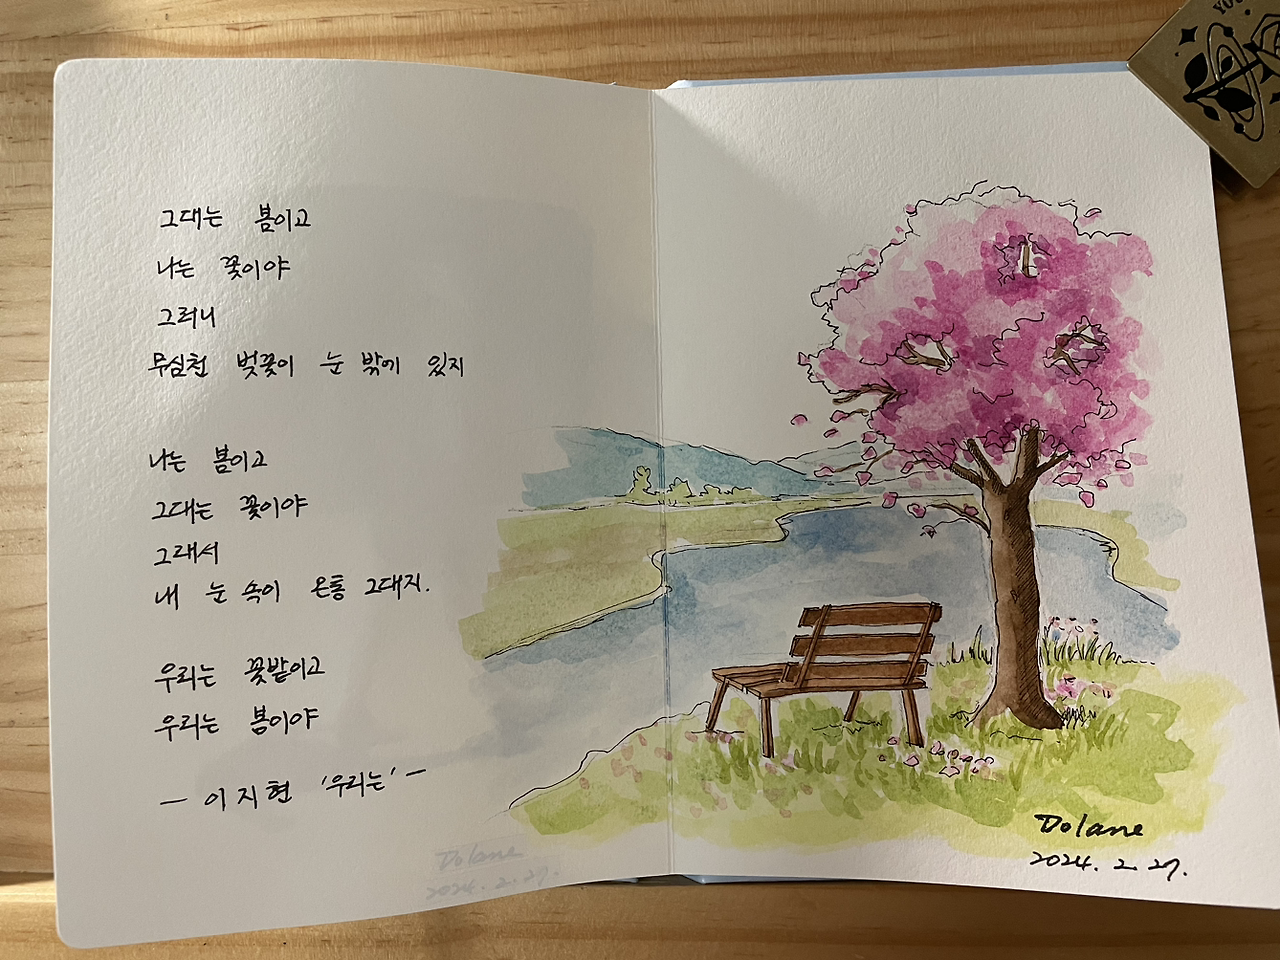 그대는 봄이고
나는 꽃이야
그러니
무심천 벚꽃이 눈 밖에 있지
나는 봄이고
그대는 꽃이야
그래서
내 눈 속이 온통 그대지.
우리는 꽃밭이고
우리는 봄이야
- 이지현 '우리는' -
Dolane
2024. 2. 27.
Dolane
2024. 2. 27.